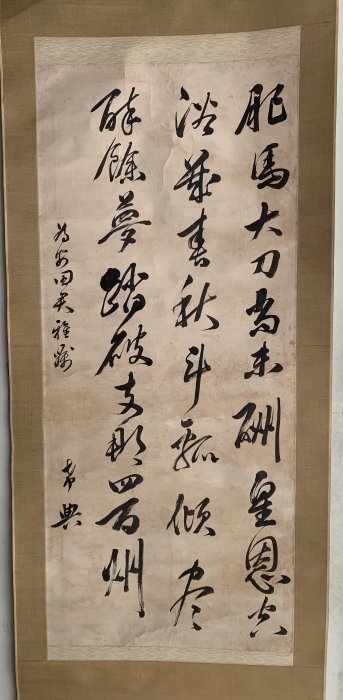 肥馬大刀尚未酬皇恩空
浴幾春秋斗瓢傾尽
酔餘夢踏破支那四百州
為田君雅嘱
希典